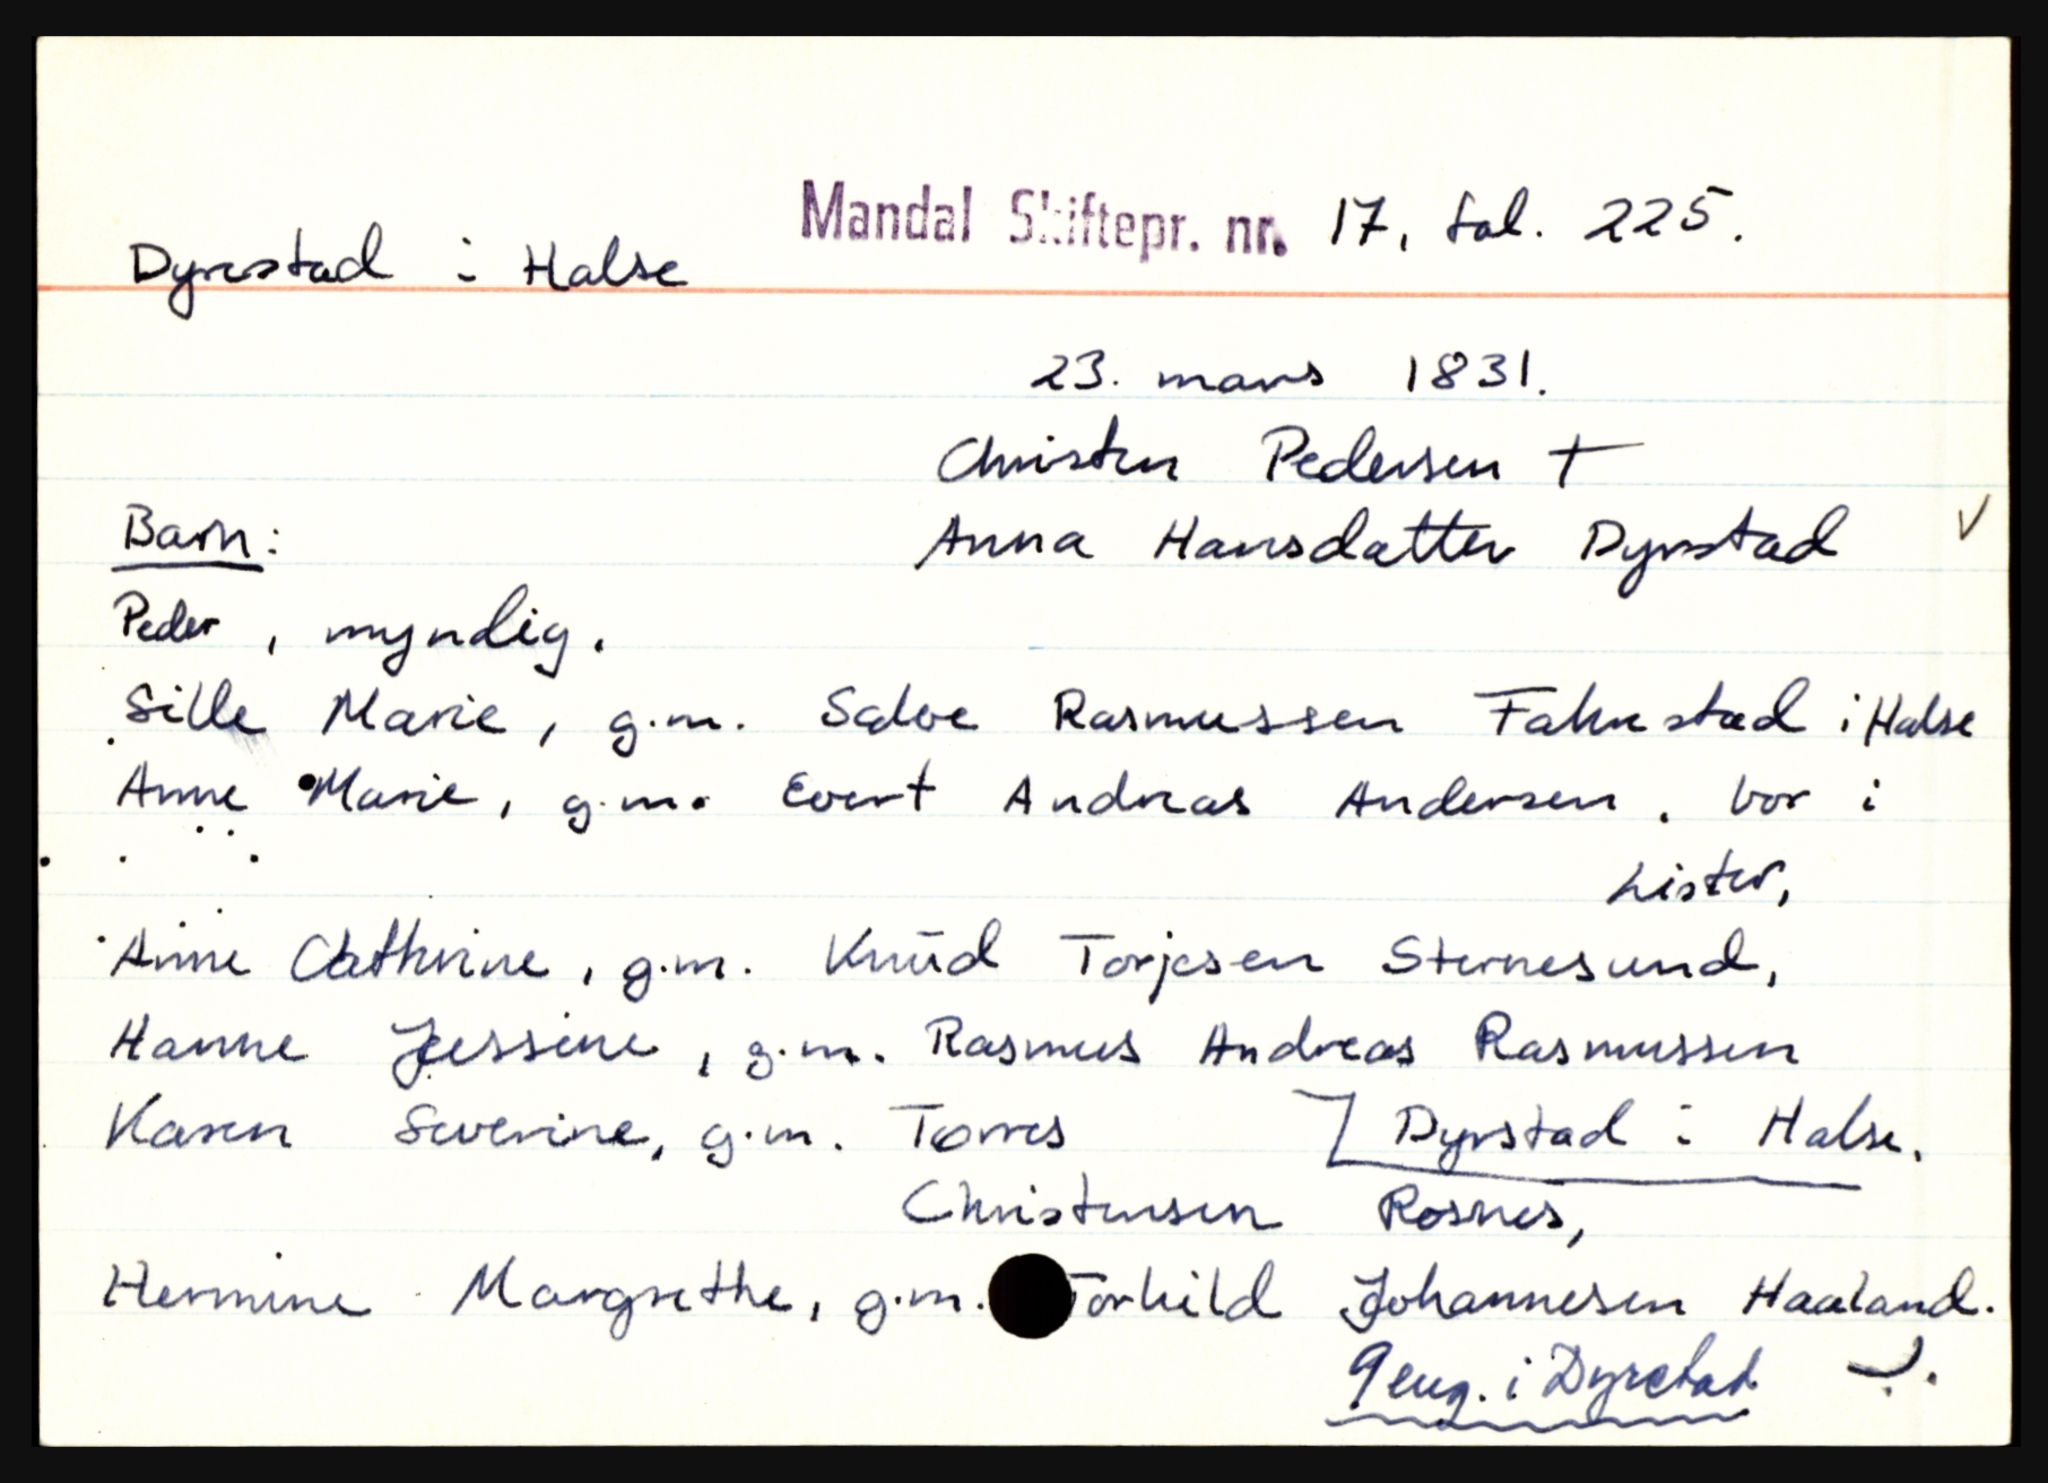 Mandal Skiftepr. nr. 17, fol. 225.
Dyrstad i Halse
23. mars 1831.
Christen Pedersen †
Barn:
Anna Hansdatter Dyrstad
Peder, myndig.
Sille Marie, g.m. Salve Rasmussen Fahrestad i Halse
Anne Marie, g.m. Evert Andreas Andersen. bor i
Lister,
Anne Cathrine, g.m. Knud Torjesen Sternesund,
Hanne Jessine, g.m. Rasmus Andreas Rasmussen
Karen Severine, g.m. Torres Dyrstad i Halse.
Christensen Rosnes,
Hermine Margrethe, g.m. Torkild Johannesen Haaland.
i Dyrstad